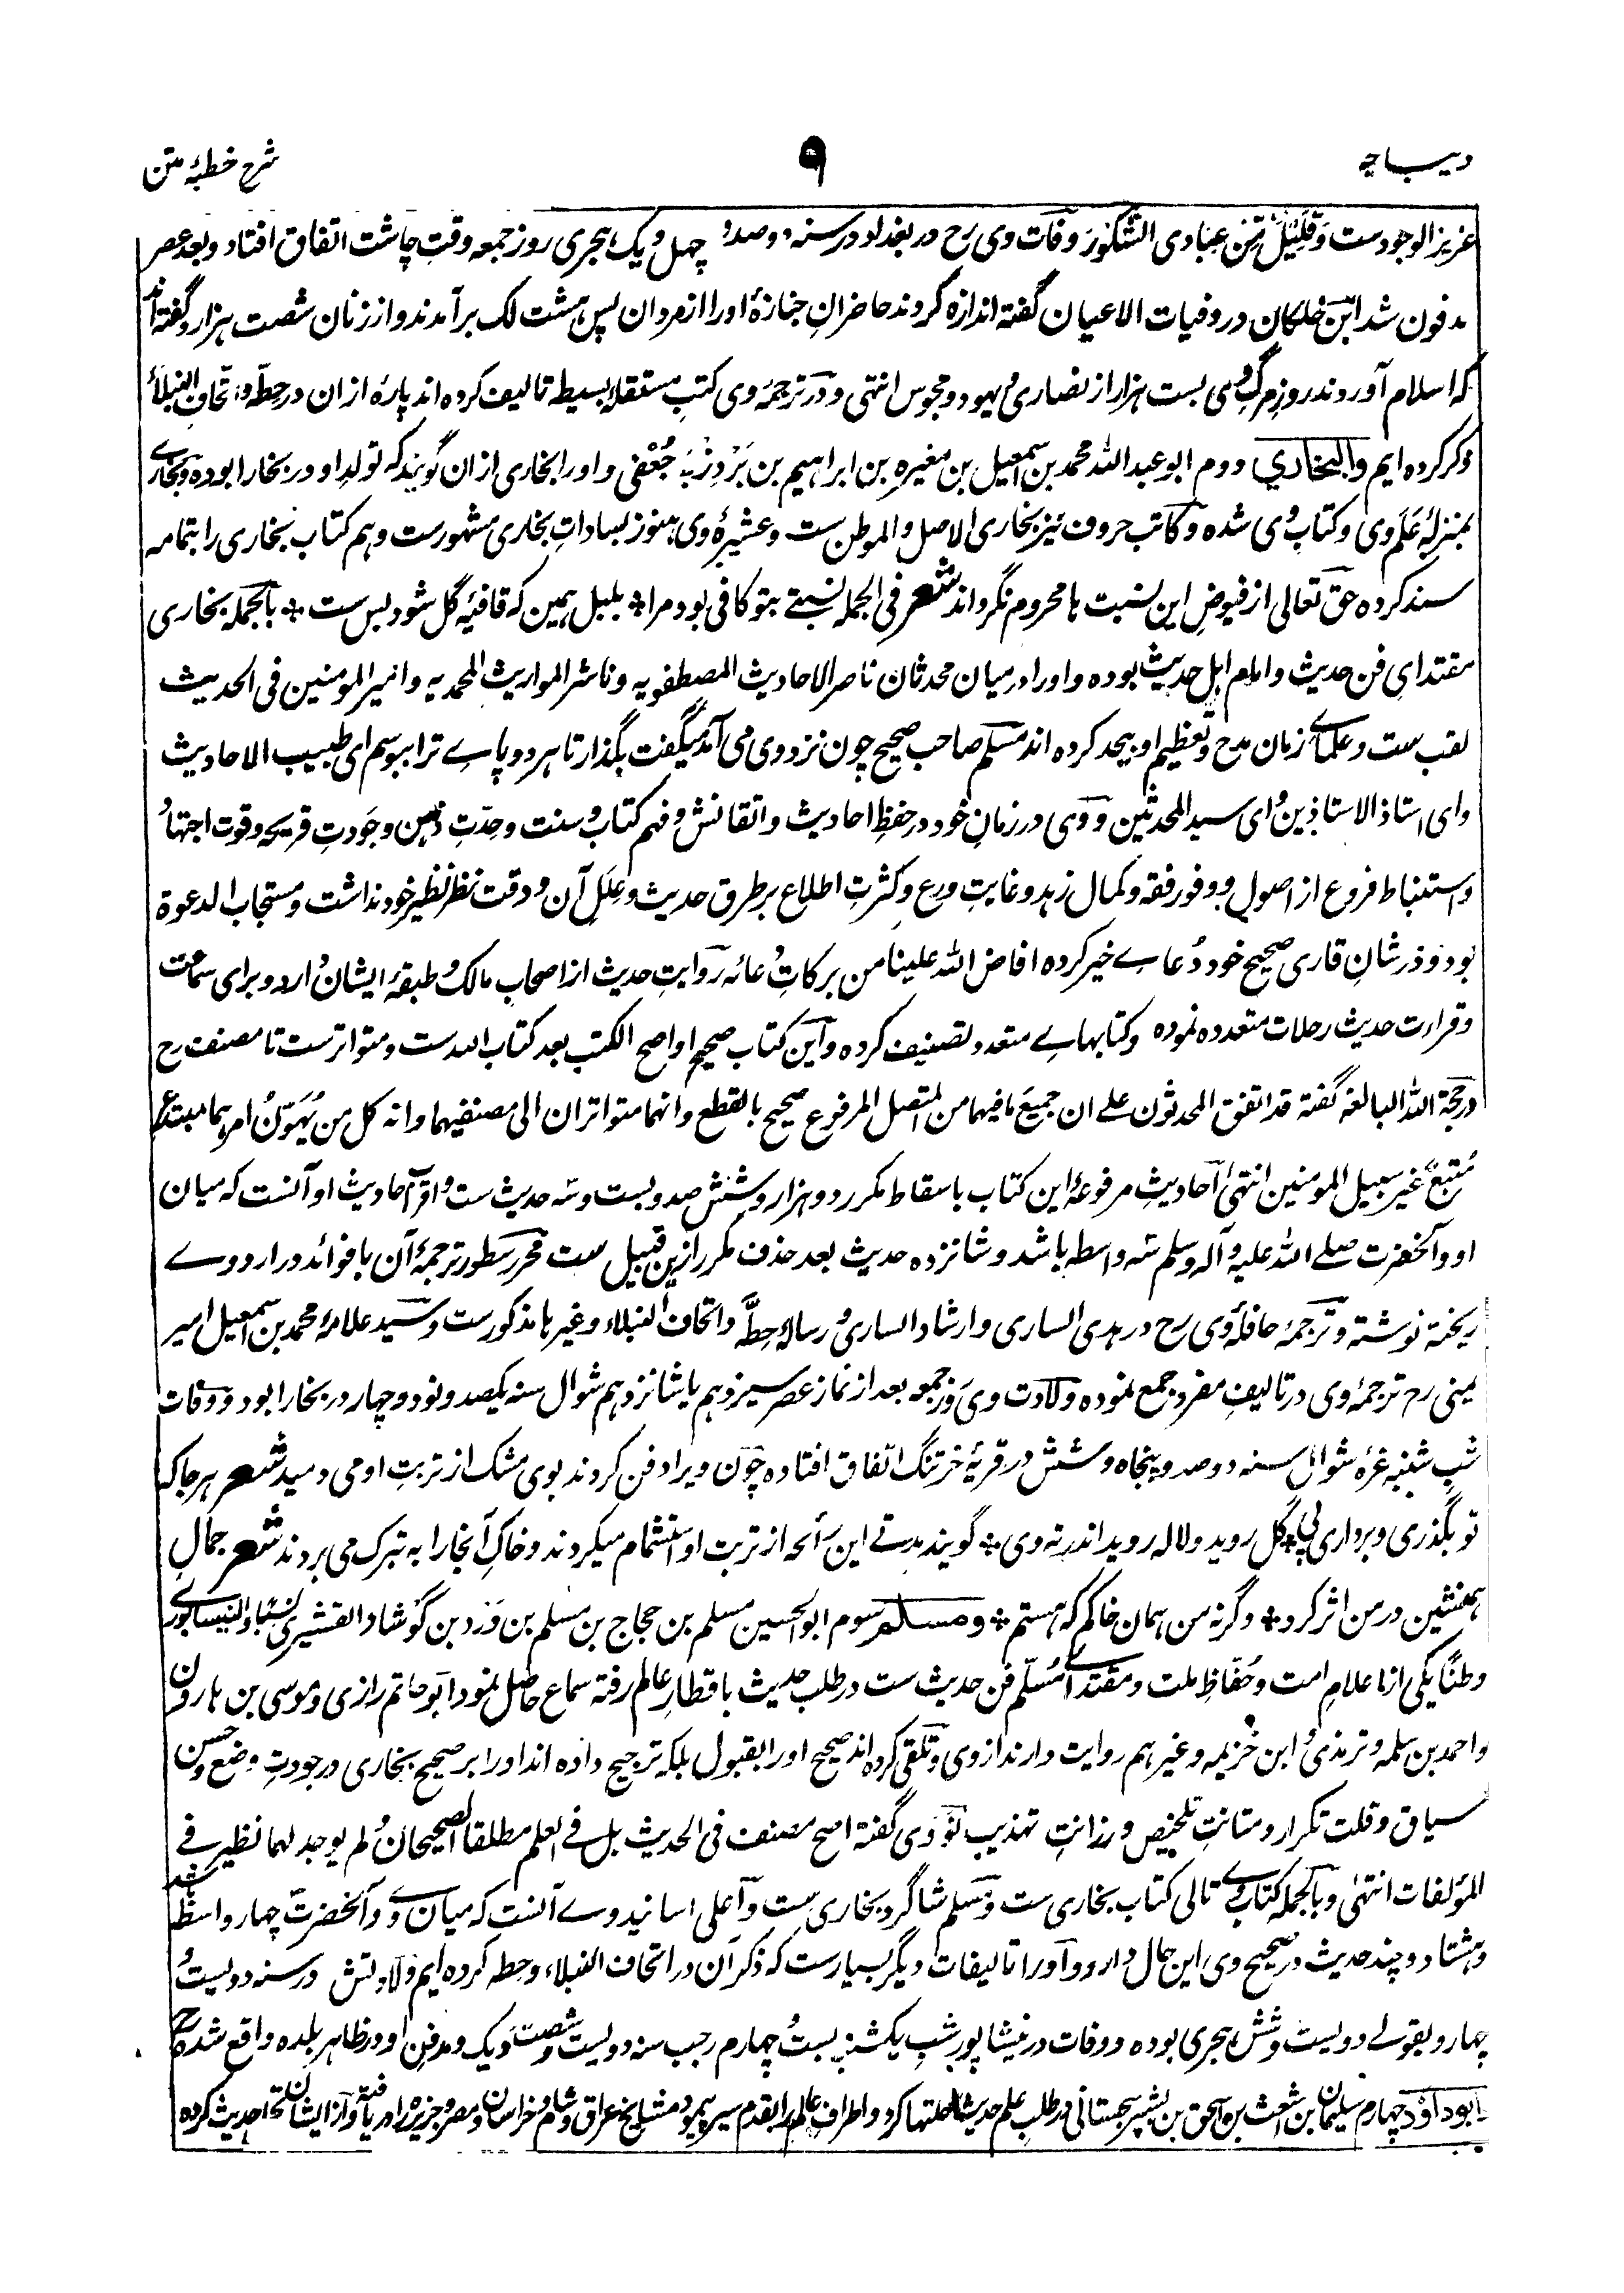 دیباچه
۹
شرح خطبۂ متن
عزیز الوجودست وَقَلِیْلٌ مِّنْ عِبَادِیَ الشَّکُوْرُ وفات وی رح در بغداد در سنه دوصد و چهل و یک هجری روز جمعه وقتِ چاشت اتفاق افتاد و بعد عصر
مدفون شد ابن خلکان در وفیات الاعیان گفته اندازه کردند حاضرانِ جنازۀ او را از مردان پس هشت لک برآمدند و از زنان شصت هزار و گفته اند
که اسلام آوردند روز مرگِ وی بست هزار از نصاری و یهود و مجوس انتهی و در ترجمۂ وی کتبِ مستقلۂ بسیطه تالیف کرده اند پارۀ ازان در حِطّه و اتحاف النبلاء
ذکر کرده ایم والبخاري دوم ابو عبد الله محمد بن اسمعیل بن مغیره بن ابراهیم بن بَرْدِزْبَه جُعْفی و او را بخاری ازان گویند که تولدِ او در بخارا بوده و بخاری
بمنزلۂ عَلَم وی و کتاب وی شده و کاتب حروف نیز بخاری الاصل والموطن ست و عشیرۂ وی هنوز بساداتِ بخاری مشهورست و هم کتاب بخاری را بتمامه
سند کرده حق تعالی از فیوضِ این نسبت ها محروم نگرداند شعر فی الجمله نسبتے بتو کافی بود مرا ٭ بلبل همین که قافیۂ گل شود بس ست ٭ بالجمله بخاری
مقتدای فن حدیث و امام اهل حدیث بوده و او را در میان محدثان ناصر الاحادیث المصطفویه و ناشر المواریث المحمدیه و امیر المومنین فی الحدیث
لقب ست و علمای زمان مدح و تعظیم او بیحد کرده اند مسلم صاحب صحیح چون نزد وی می آمد میگفت بگذار تا هر دو پاے ترا ببوسم ای طبیب الاحادیث
وای استاذ الاستاذین و ای سید المحدثین و وی در زمانِ خود در حفظِ احادیث و اتقانش و فهم کتاب و سنت و حِدّتِ ذهن و جَودتِ قریحه و قوت اجتهاد
و استنباط فروع از اصول و وفور فقه و کمال زهد و غایتِ ورع و کثرتِ اطلاع بر طرق حدیث و عِلَلِ آن و دقت نظر نظیر خود نداشت و مستجاب الدعوة
بود و در شانِ قاری صحیح خود دُعاے خیر کرده افاض الله علینا من برکاتِ دعائه روایتِ حدیث از اصحاب مالک و طبقۂ ایشان دارد و برای سماعت
و قراءت حدیث رحلات متعدده نموده و کتابهاے متعدد تصنیف کرده و این کتاب صحیح او اصح الکتب بعد کتاب الله ست و متواترست تا مصنف رح
در حجة الله البالغه گفته قد اتفق المحدثون علے ان جمیعَ ما فیهما من المتصل المرفوع صحیح بالقطع وانهما متواتران الی مصنفیهما وانه کل من یُهَوِّنُ امرهما مبتدع
مُتَّبِعٌ غیر سبیل المومنین انتهیٰ احادیثِ مرفوعۂ این کتاب باسقاط مکرر دو هزار و شش صد و بست و سه حدیث ست و اقرب احادیث او آنست که میان
او و آنحضرت صلے الله علیه وآله وسلم سه واسطه باشد و شانزده حدیث بعد حذف مکرر ازین قبیل ست محرر سطور ترجمۂ آن با فوائد در اردوے
ریخته نوشته و ترجمۂ حافلۂ وی رح در هدی الساری و ارشاد الساری و رسالۂ حِطّه و اتحاف النبلاء و غیرها مذکورست و سید علامه محمد بن اسمعیل امیر
یمنی رح ترجمۂ وی در تالیفِ مفرد جمع نموده ولادت وی روز جمعه بعد از نماز عصر سیزدهم یا شانزدهم شوال سنه یکصد و نود و چهار در بخارا بود و وفات
شبِ شنبه غرۂ شوال سنه دوصد و پنجاه و شش در قریۂ خرتنگ اتفاق افتاده چون ویرا دفن کردند بوی مشک از تربتِ او می دمید شعر هرجا که
تو بگذری و برداری پی ٭ گل روید و لاله روید اندر ته وی ٭ گویند مدتے این رائحه از تربت او استشمام میکردند و خاکِ آنجا را به تبرک می بردند شعر جمالِ
همنشین در من اثر کرد ٭ وگرنه من همان خاکم که هستم ٭ ومسلم سوم ابو الحسین مسلم بن حجاج بن مسلم بن وَرْد بن کوشاد القشیری نسبًا والنیسابوری
وطنًا یکی از اعلامِ امت و حُفّاظِ ملت و مقتدای مُسلّم فن حدیث ست در طلب حدیث باقطارِ عالم رفته سماع حاصل نمود ابو حاتم رازی و موسی بن هارون
واحمد بن سلمه و ترمذی و ابن خزیمه و غیرهم روایت دارند از وی و تلقی کرده اند صحیح او را بقبول بلکه ترجیح داده اند او را بر صحیح بخاری در جودتِ وضع و حسن
سیاق و قلت تکرار و متانتِ تلخیص و رزانتِ تهذیب نووی گفته اصح مصنف فی الحدیث بل فی العلم مطلقا الصحیحان و لم یوجد لهما نظیر فی
المؤلفات انتهیٰ و بالجمله کتاب وے تالی کتاب بخاری ست و مسلم شاگرد بخاری ست و اعلی اسانید وے آنست که میان وے و آنحضرت چهار واسطه باشد
و هشتاد و چند حدیث در صحیح وی این حال دارد و او را تالیفات دیگر بسیارست که ذکر آن در اتحاف النبلاء و حطه کرده ایم ولادتش در سنه دویست و
چهار و بقولے دویست و شش هجری بوده و وفات در نیشاپور شبِ یکشنبه بست و چهارم رجب سنه دویست و شصت و یک و مدفنِ او در ظاهر بلده واقع شده رح
ابوداؤد چهارم سلیمان بن اشعث بن اسحق بن بشیر سجستانی در طلب علم حدیث رحلتها کرد و اطراف عالم را بقدم سیر پیمود و مشایخ عراق و شام و خراسان و مصر و جزیره را دریافته و از ایشان اخذ حدیث کرده